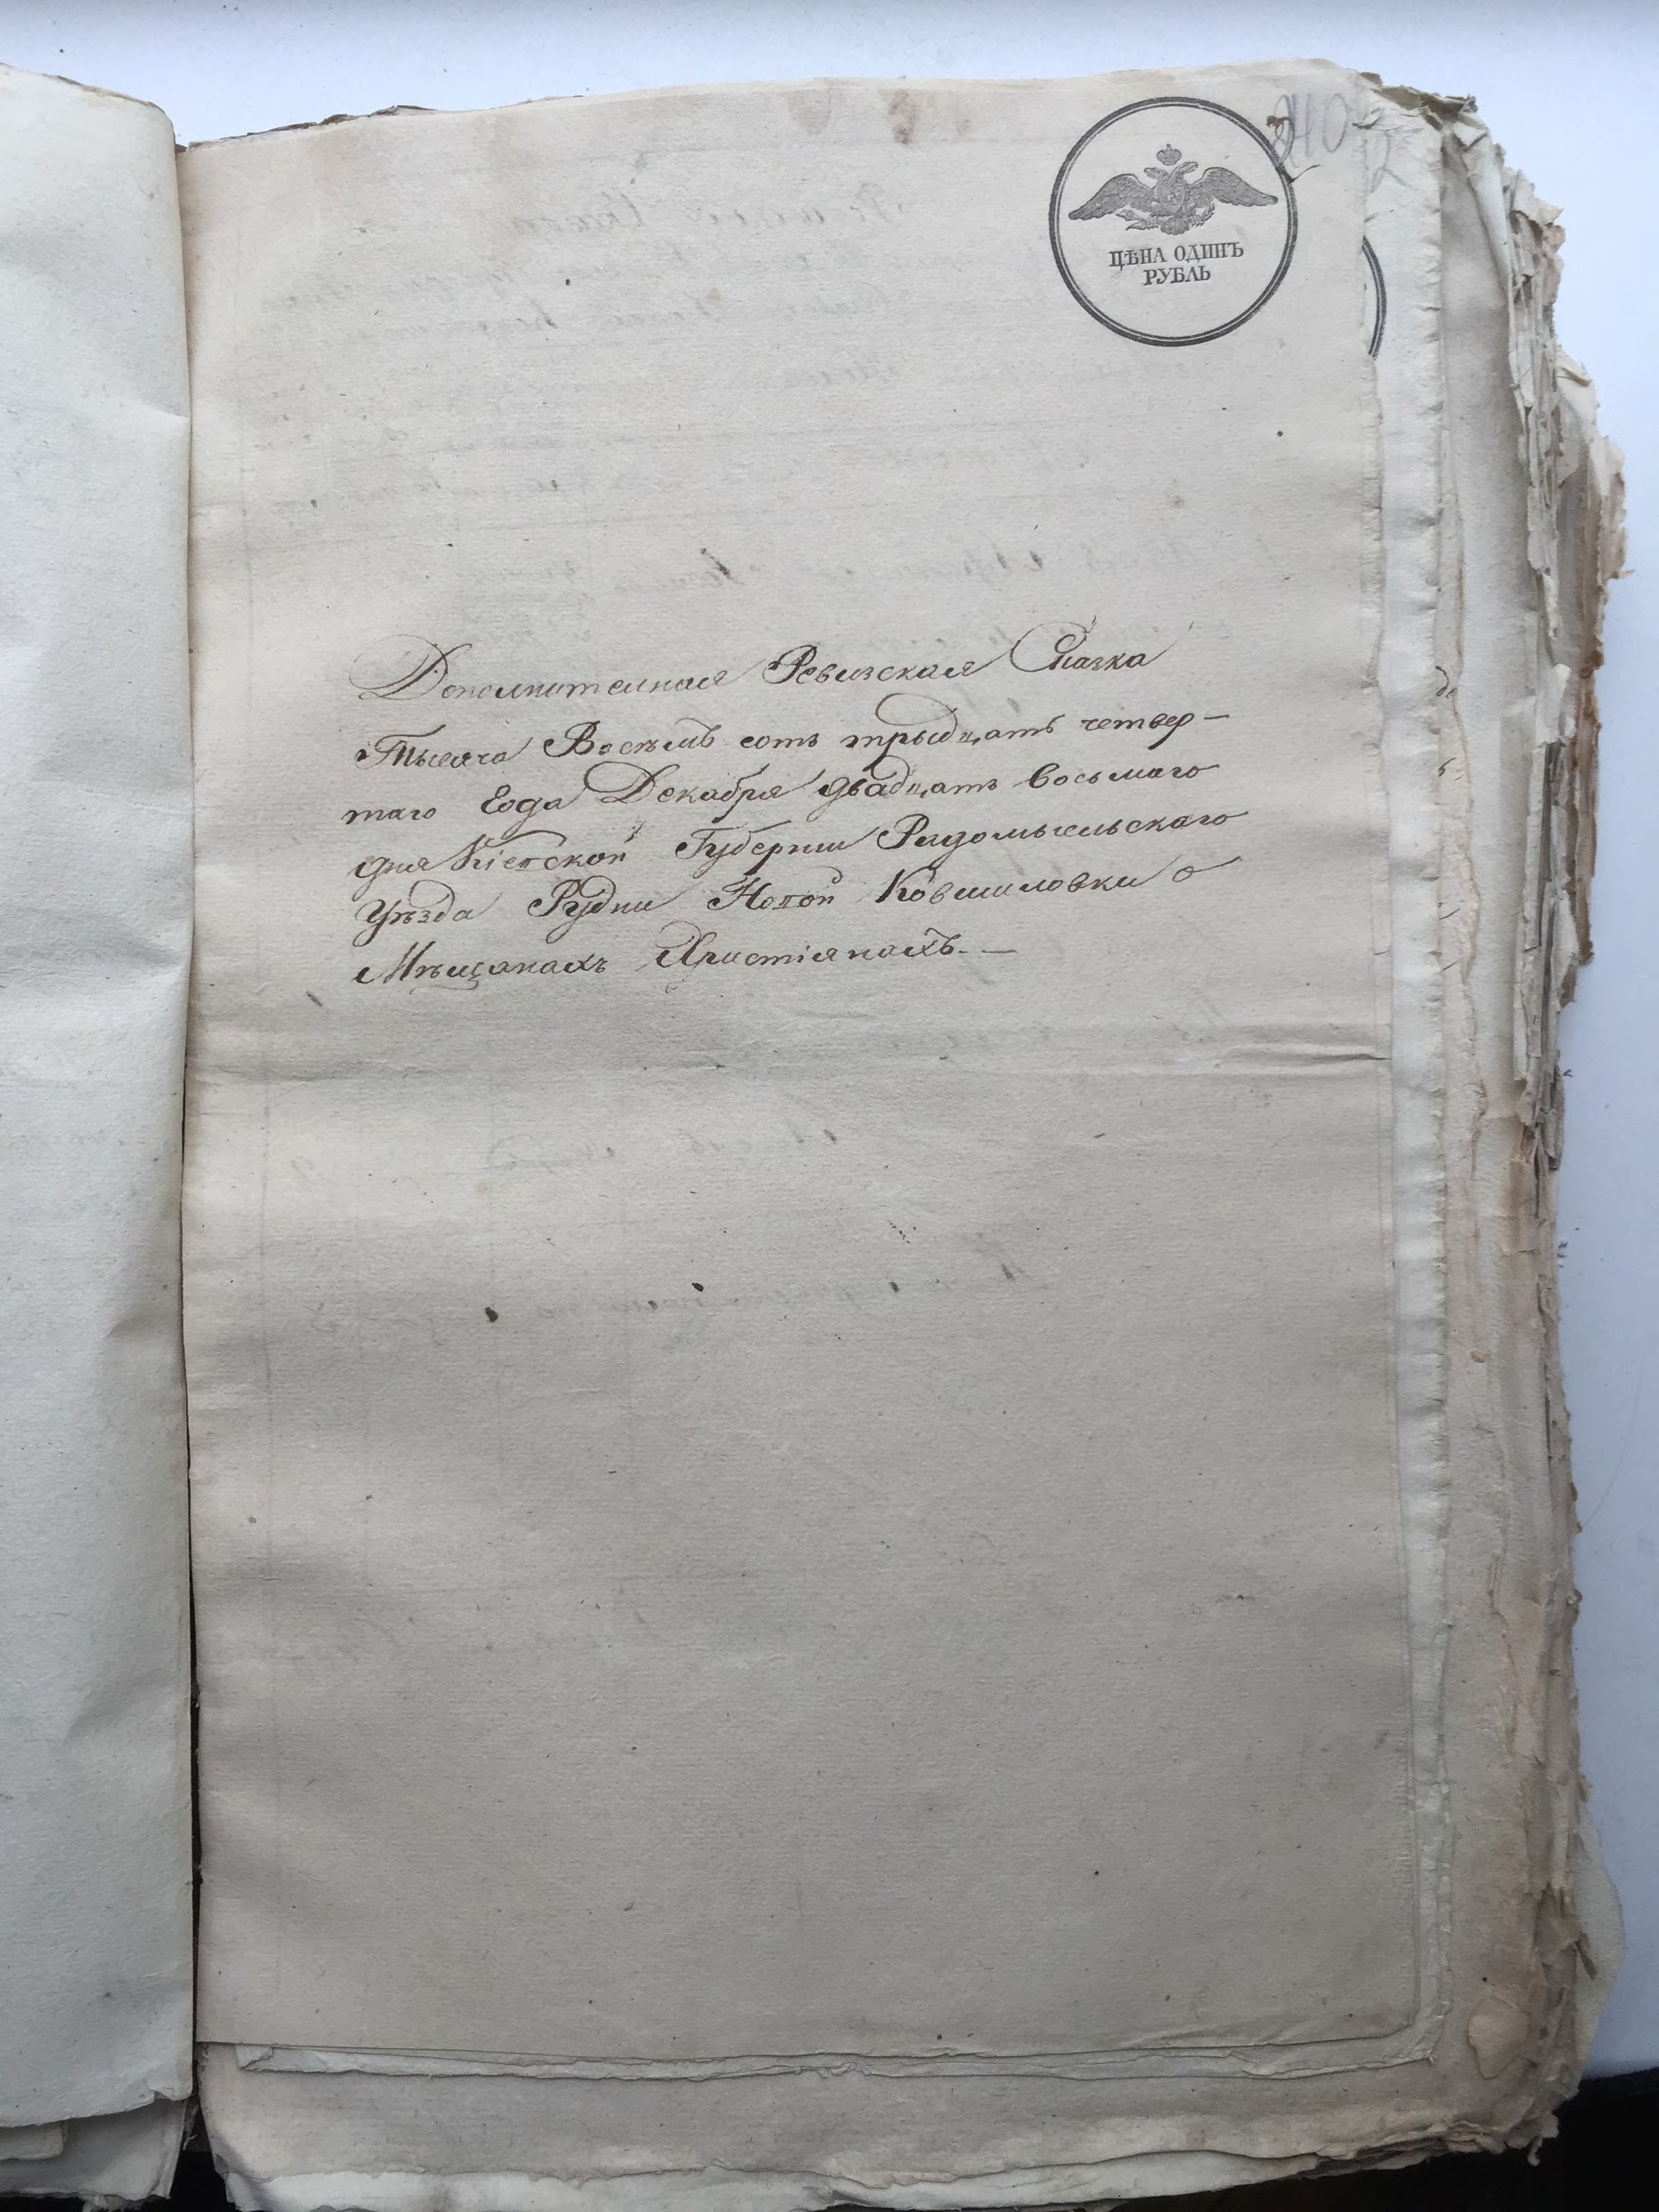 ЦѢНА ОДИНЪ
РУБЛЬ
Дополнителная Ревизская Сказка
Тысяча Восѣмъ сотъ трыдцать четвер-
таго Года Декабря двадцать восьмаго
дня Кіевской Губерніи Радомысльскаго
Уѣзда Рудни Новой Ковшиловки о
Мѣщанахъ Христіянахъ.—